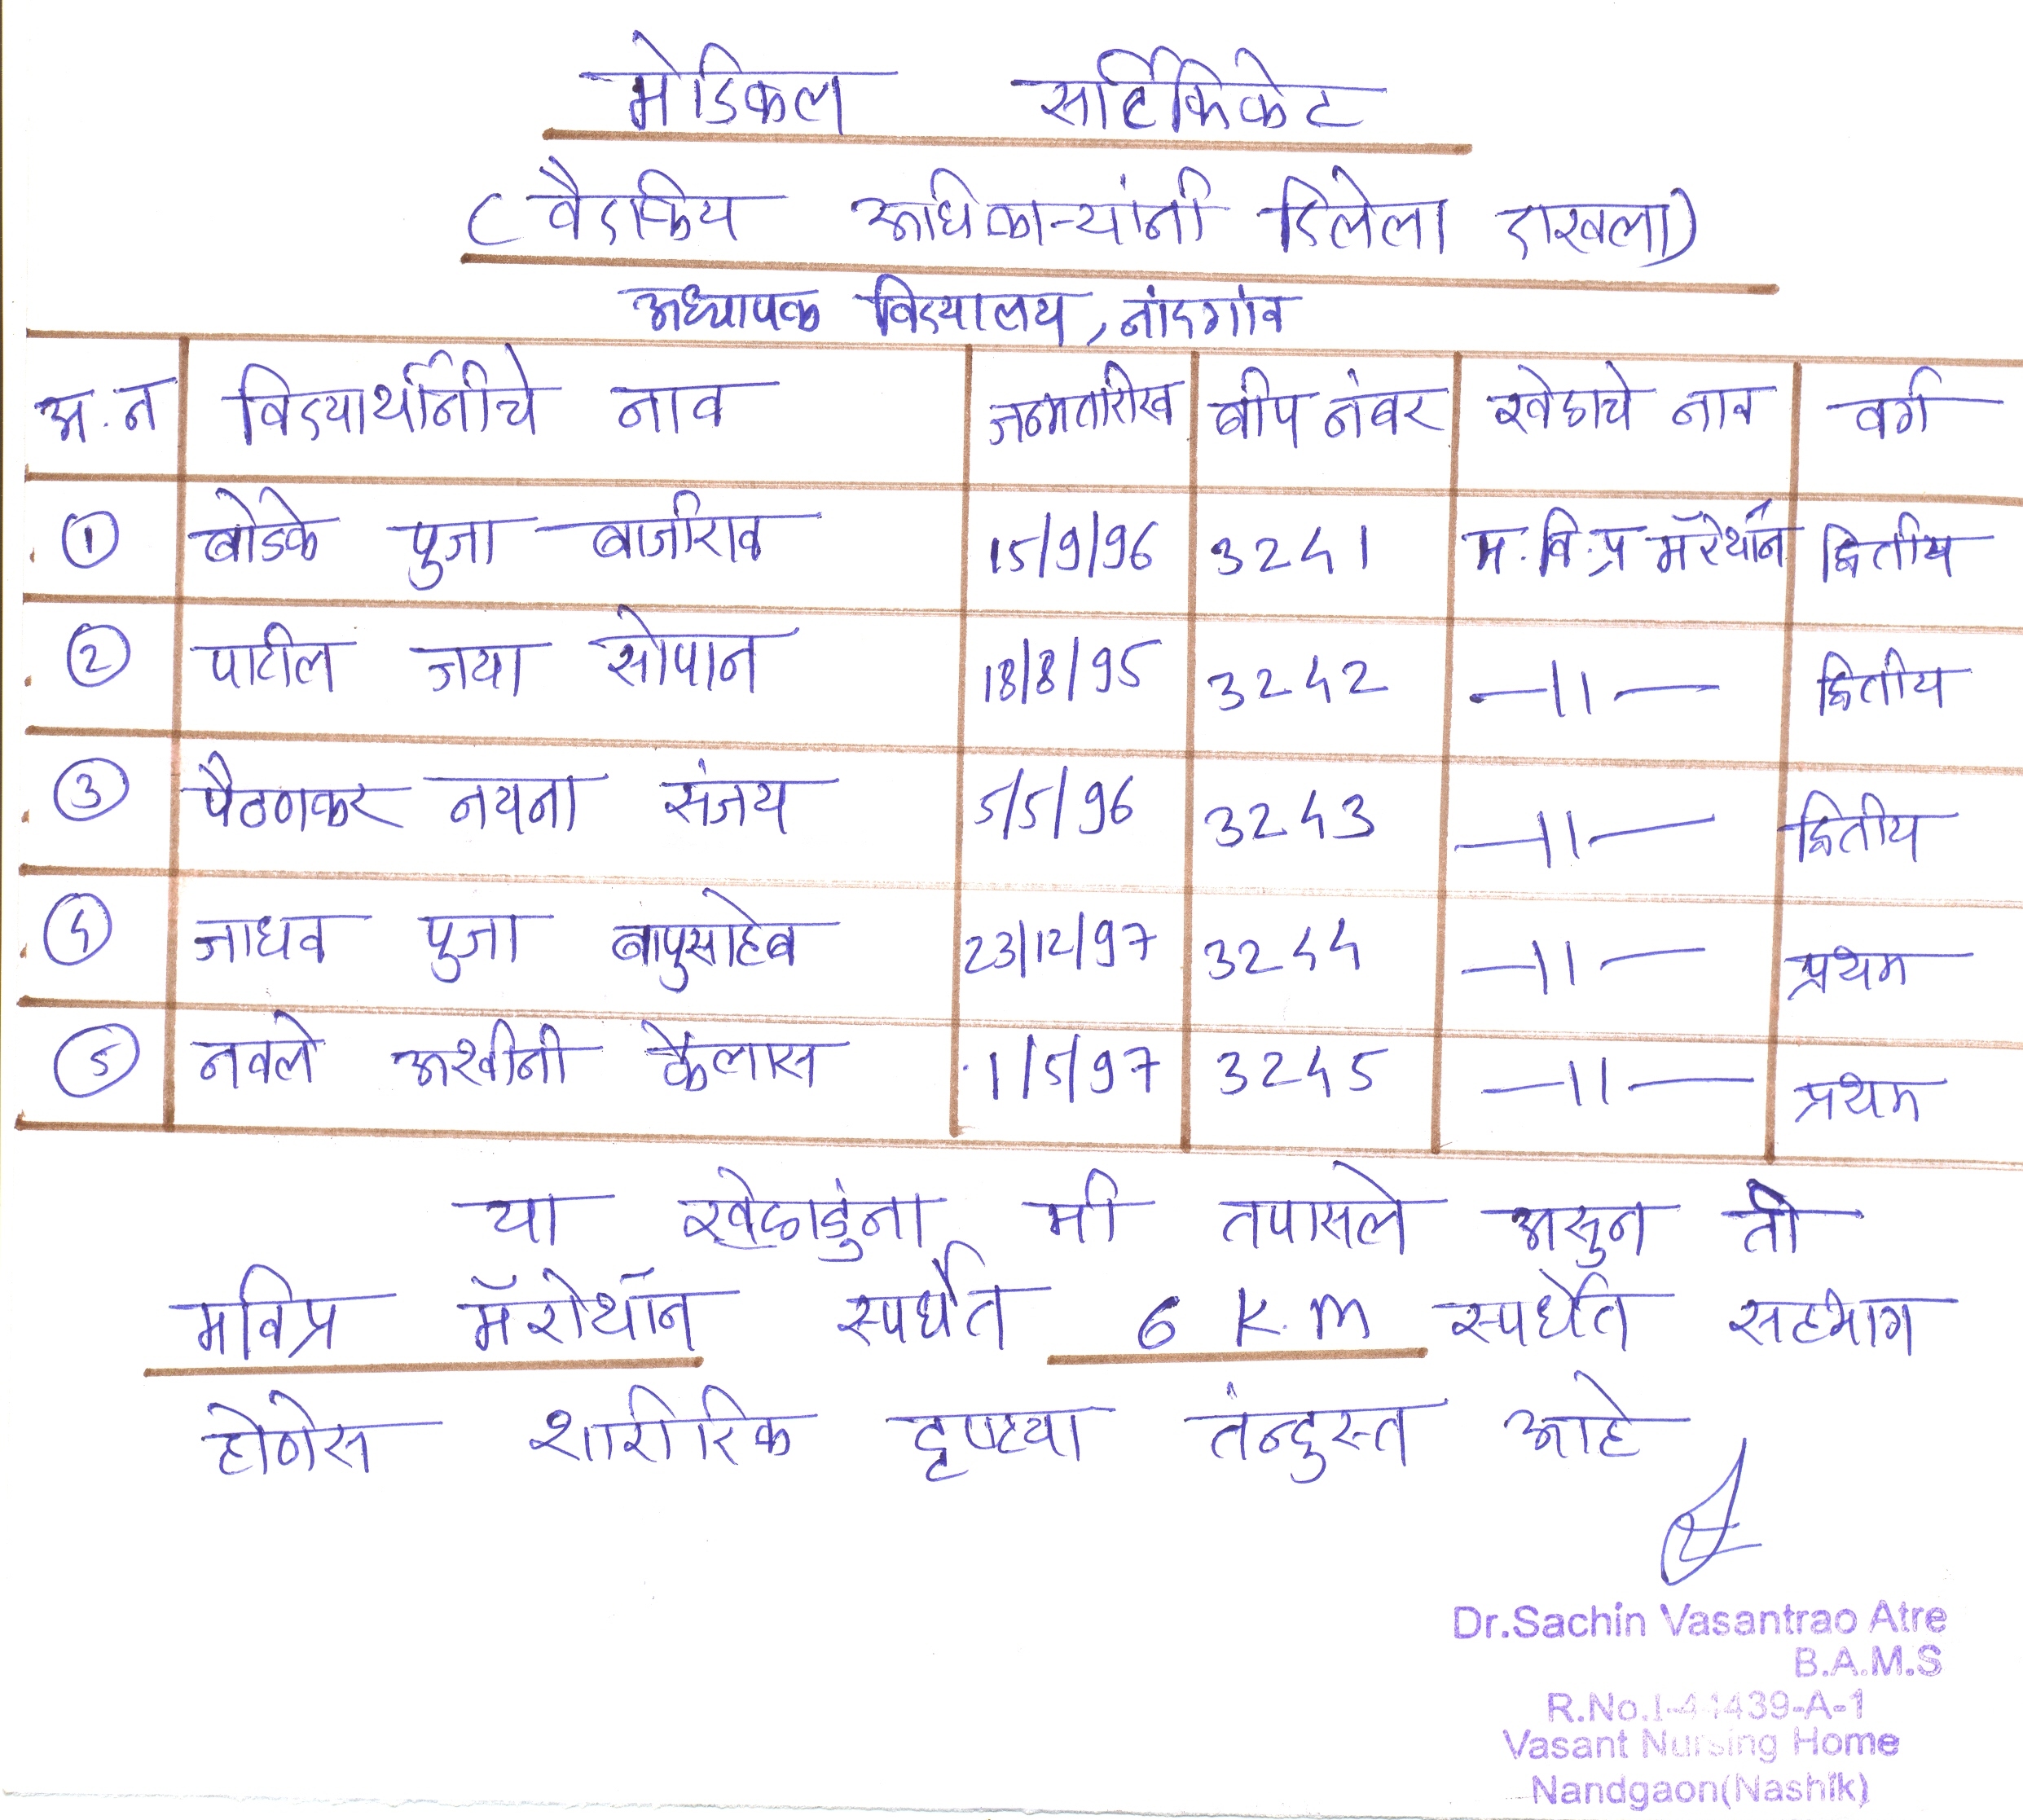 मेडिकल सर्टिफिकेट
(वैदयकिय अधिकाऱ्यांनी दिलेला दाखला)
अध्यापक विद्यालय, नांदगांव
अ.न विद्यार्थीनीचे नाव जन्मतारीख बीप नंबर खेळाचे नाव वर्ग
① बोडके पुजा बाजीराव 15/9/96 3241 म.वि.प्र मॅरेथॉन द्वितीय
② पाटील जया सोपान 18/8/95 3242 —11— द्वितीय
③ पैठणकर नयना संजय 5/5/96 3243 —11— द्वितीय
④ जाधव पुजा बापुसाहेब 23/12/97 3244 —11— प्रथम
⑤ नवले अश्वीनी कैलास 1/5/97 3245 —11— प्रथम
या खेळाडुंना मी तपासले असुन ती
मविप्र मॅरोथॉन स्पर्धेत 6 K.m स्पर्धेत सहभाग
होणेस शारीरिक दृष्ट्या तंन्दुस्त आहे
Dr.Sachin Vasantrao Atre
B.A.M.S
Vasant Nursing Home
Nandgaon(Nashik)